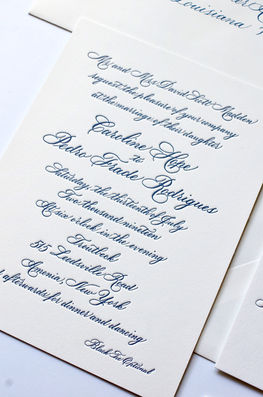 Louisiana
Mr. and Mrs. David Scott Madden
request the pleasure of your company
at the marriage of their daughter
Caroline Hope
to
Pedro Frade Rodrigues
Saturday, the thirteenth of July
Two thousand nineteen
at six o'clock in the evening
Troutbeck
515 Leedsville Road
Amenia, New York
afterwards for dinner and dancing
Black Tie Optional